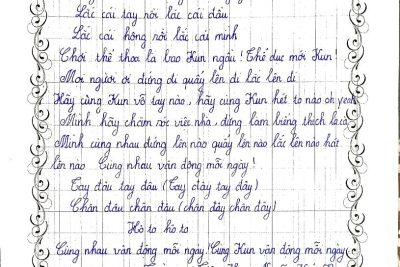 Lắc cái tay nời lắc cái đầu
Lắc cái hông nời lắc cái mình
Chơi thể thao là bao Kun ngầu! Thể dục mới Kun!
Mọi người ơi đứng đi quẩy lên đi lắc lên đi
Hãy cùng Kun vỗ tay nào, hãy cùng Kun hét to nào oh yeah
Mình hãy chăm rơc việc nhà, đừng lam biếng thích la cà
Mình cùng nhau đứng lên nào quẩy lên nào lắc lên nào hát
lên nào Cùng nhau vận động mỗi ngày!
Tay đâu tay đâu (Tay đây tay đây)
Chân đâu chân đâu (chân đây chân đây)
Hò to hò to
Cùng nhau vận động mỗi ngày! Cùng Kun vận động mỗi ngày